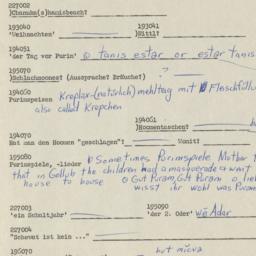 227002
Chamám(s)hanisbeach?
193040
'Weihnachten'
193041
Hittl?
194051
'der Tag vor Purim' tanis estar or estar tanis
195070
Schlachmones? (Aussprache? Bräuche?)
194060
Purimspeisen Kreplax-(natürlich) mehltag mit Fleischfüllu
also called Krepchen
194061
Hoomentaschen?
194070
Hat man den Haman "geschlagen": Womit?
195080
Purimspiele, -lieder Sometimes Purimspiele. Mother t
that in Gellub the children had a masquerade & went
house to house Gut Puram, Gut Puram o lieb
wisst ihr wohl was Puram
227003
'ein Schuljahr'
195090
'der 2. Oder' wë Adar
227004
"Schevat ist kein ..."
196070
but micva